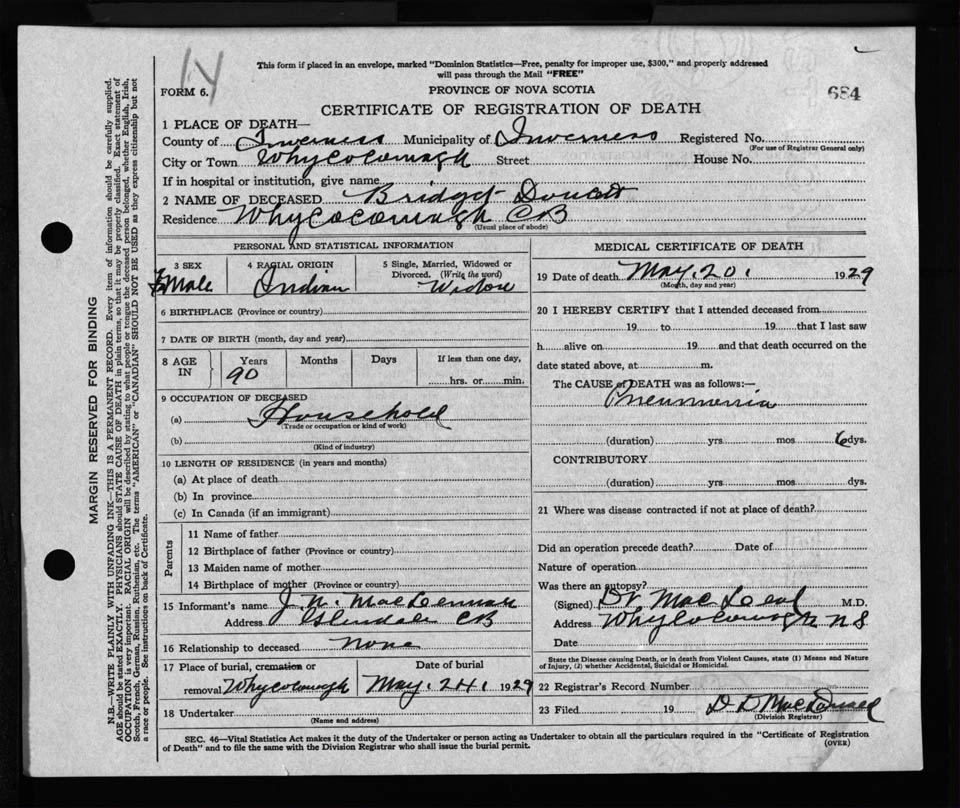 14
This form if placed in an envelope, marked "Dominion Statistics—Free, penalty for improper use, $300," and properly addressed
will pass through the Mail "FREE"
FORM 6.
PROVINCE OF NOVA SCOTIA
684
CERTIFICATE OF REGISTRATION OF DEATH
1 PLACE OF DEATH—
County of Inverness Municipality of Inverness Registered No.
(For use of Registrar General only)
City or Town Whycocomagh Street House No.
If in hospital or institution, give name
2 NAME OF DECEASED Bridget Doucet
Residence Whycocomagh CB
(Usual place of abode)
PERSONAL AND STATISTICAL INFORMATION
3 SEX 4 RACIAL ORIGIN 5 Single, Married, Widowed or
Divorced. (Write the word)
FMale Indian Widow
6 BIRTHPLACE (Province or country)
7 DATE OF BIRTH (month, day and year)
8 AGE IN Years Months Days If less than one day,
90 hrs. or min.
9 OCCUPATION OF DECEASED
(a) Household
(Trade or occupation or kind of work)
(b)
(Kind of industry)
10 LENGTH OF RESIDENCE (in years and months)
(a) At place of death
(b) In province
(c) In Canada (if an immigrant)
Parents
11 Name of father
12 Birthplace of father (Province or country)
13 Maiden name of mother
14 Birthplace of mother (Province or country)
15 Informant's name J. N. MacLennan
Address Glendale CB
16 Relationship to deceased None
17 Place of burial, cremation or Date of burial
removal Whycocomagh May. 24. 1929
18 Undertaker
(Name and address)
MEDICAL CERTIFICATE OF DEATH
19 Date of death May. 20. 1929
(Month, day and year)
20 I HEREBY CERTIFY that I attended deceased from
19 to 19 that I last saw
h alive on 19 and that death occurred on the
date stated above, at m.
The CAUSE of DEATH was as follows:—
Pneumonia
(duration) yrs. mos 6 dys.
CONTRIBUTORY
(duration) yrs. mos. dys.
21 Where was disease contracted if not at place of death?
Did an operation precede death? Date of
Nature of operation
Was there an autopsy?
(Signed) Dr. MacLeod M.D.
Address Whycocomagh NS
Date
State the Disease causing Death, or in death from Violent Causes, state (1) Means and Nature
of Injury, (2) whether Accidental, Suicidal or Homicidal.
22 Registrar's Record Number
23 Filed 19 D D MacDonald
(Division Registrar)
SEC. 46—Vital Statistics Act makes it the duty of the Undertaker or person acting as Undertaker to obtain all the particulars required in the "Certificate of Registration
of Death" and to file the same with the Division Registrar who shall issue the burial permit.
(OVER)
MARGIN RESERVED FOR BINDING
N.B.—WRITE PLAINLY WITH UNFADING INK—THIS IS A PERMANENT RECORD. Every item of information should be carefully supplied.
AGE should be stated EXACTLY. PHYSICIANS should STATE CAUSE OF DEATH in plain terms, so that it may be properly classified. Exact statement of
OCCUPATION is very important. RACIAL ORIGIN will be described by stating to what people or tongue the deceased person belonged, whether English, Irish,
Scotch, French, German, Russian, Ruthenian, etc. The terms "AMERICAN" or "CANADIAN" SHOULD NOT BE USED as they express citizenship but not
a race or people. See instructions on back of Certificate.